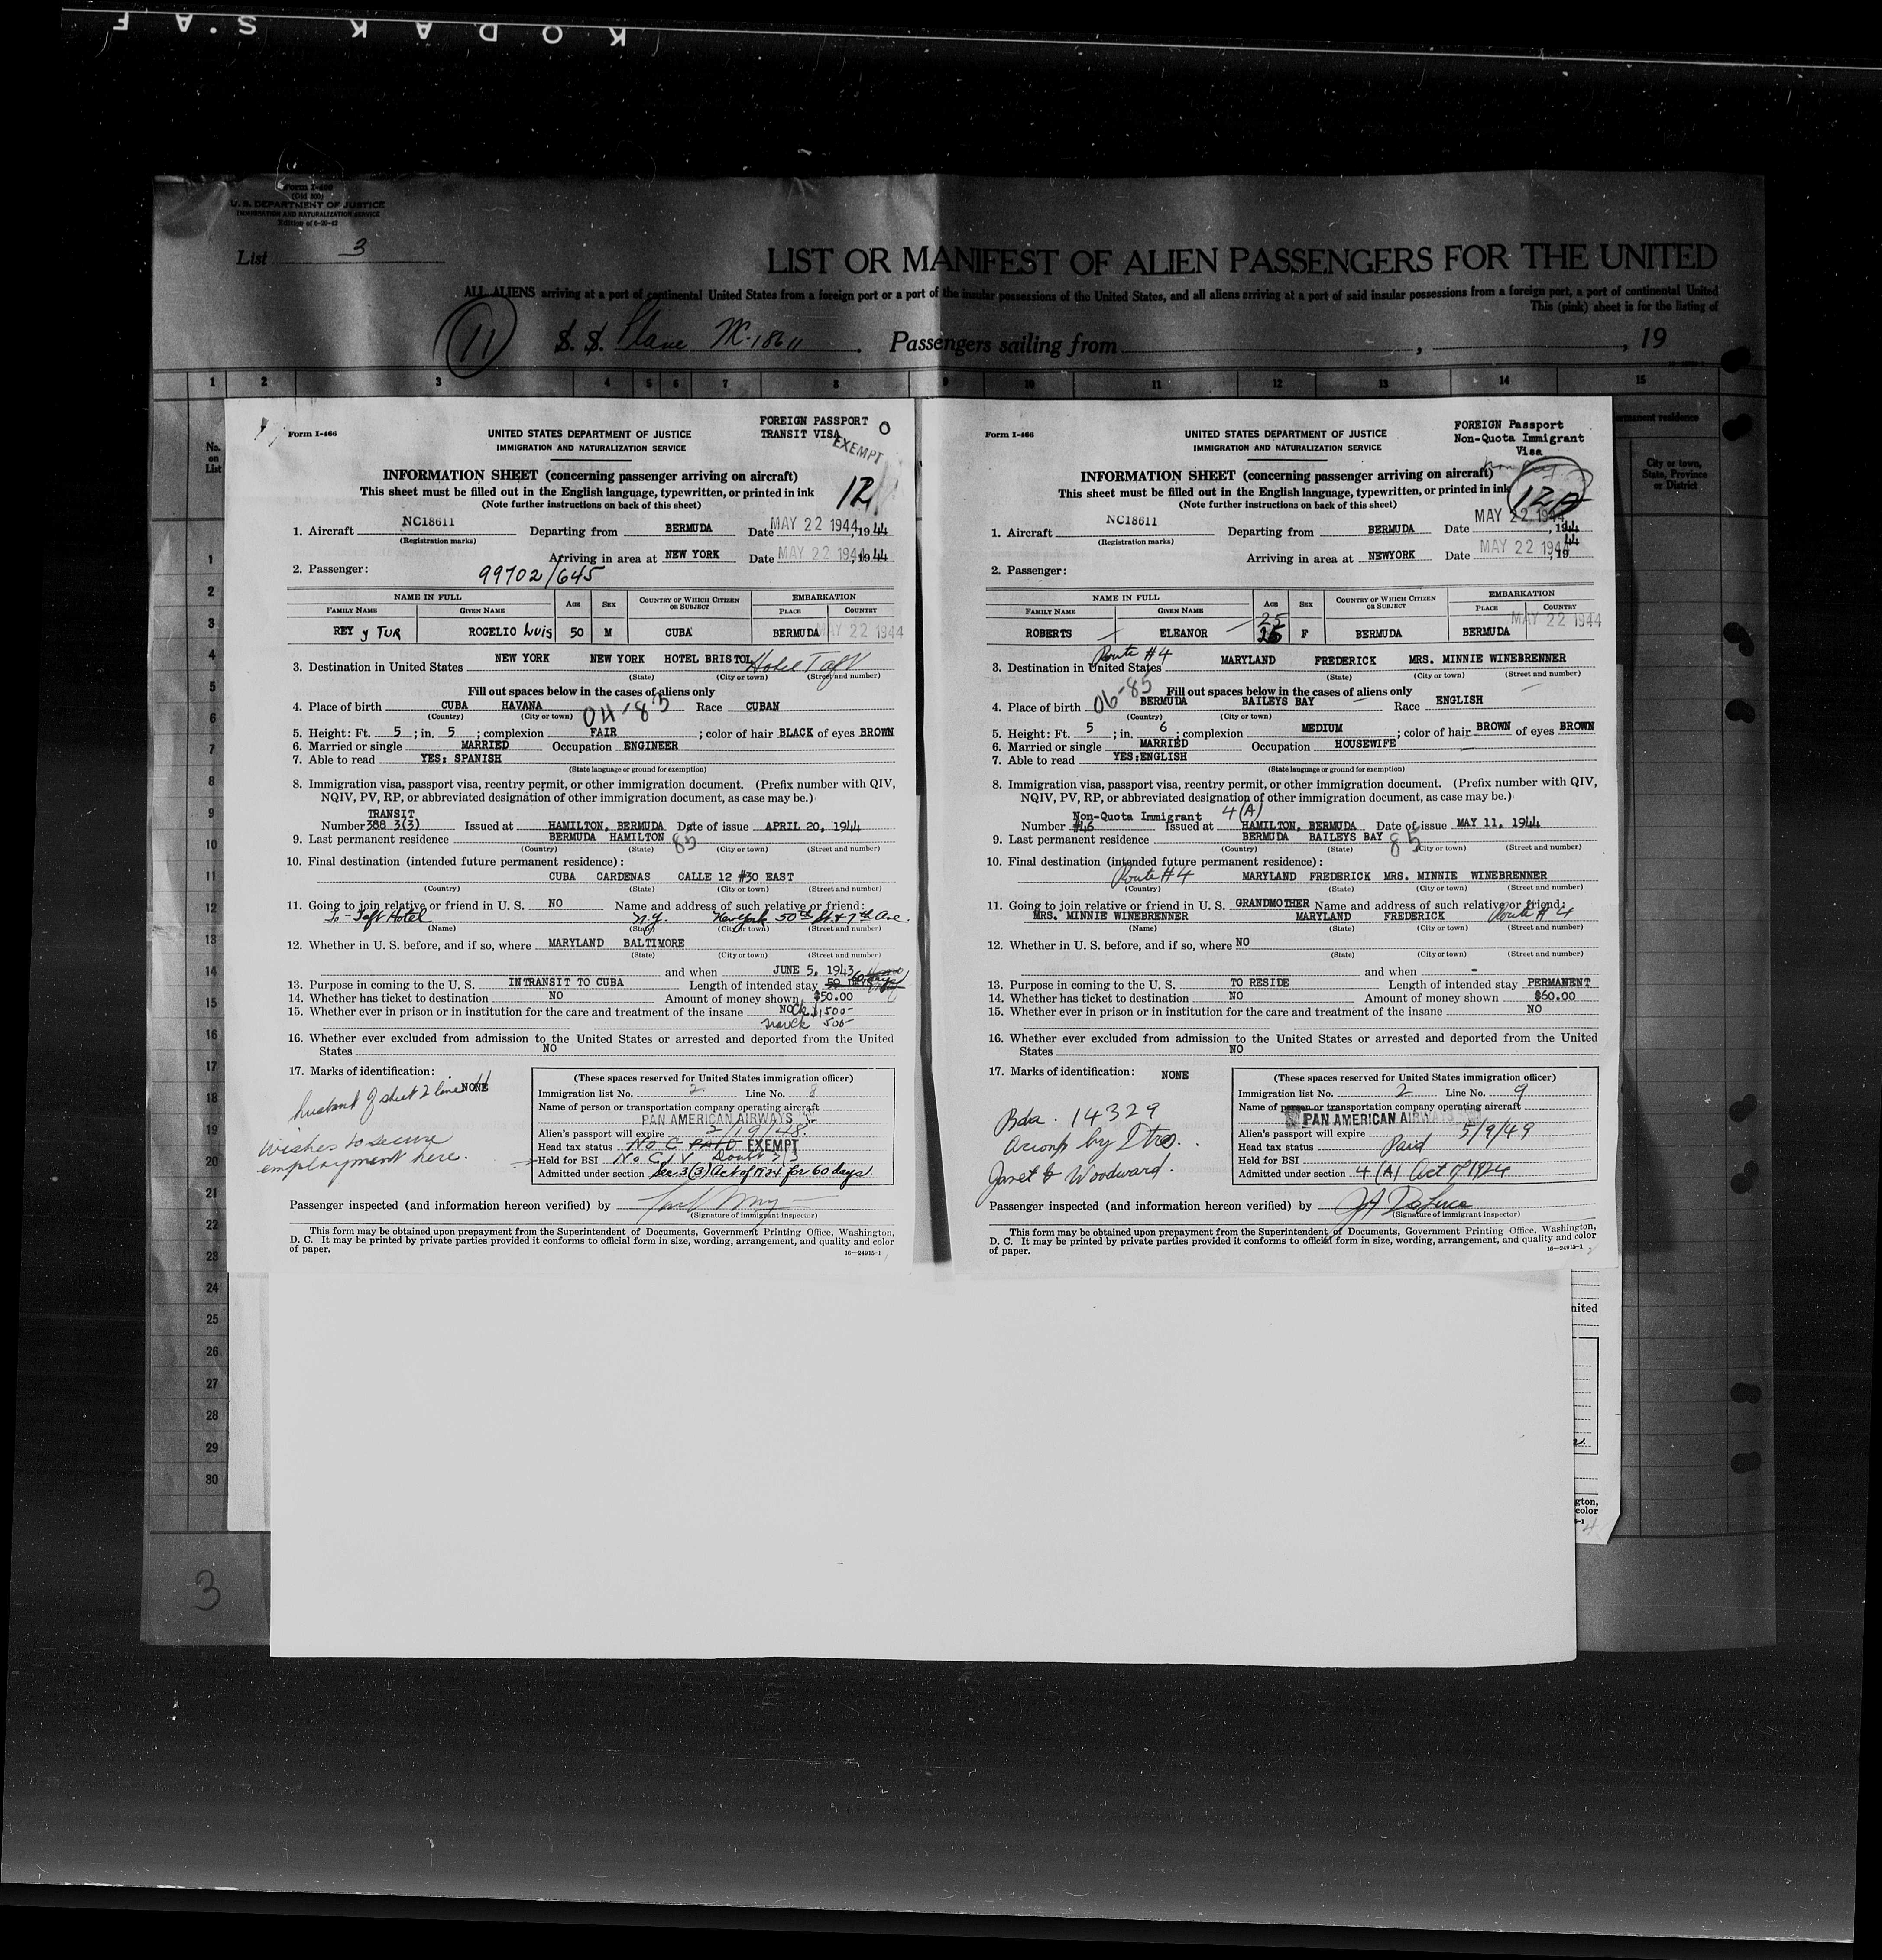 KODAK S.A F
Form I-466
(Old 500)
U. S. DEPARTMENT OF JUSTICE
IMMIGRATION AND NATURALIZATION SERVICE
Edition of 6-20-42
List 3
LIST OR MANIFEST OF ALIEN PASSENGERS FOR THE UNITED
ALL ALIENS arriving at a port of continental United States from a foreign port or a port of the insular possessions of the United States, and all aliens arriving at a port of said insular possessions from a foreign port, a port of continental United
This (pink) sheet is for the listing of
11 S. S. Plane NC-18611 . Passengers sailing from , , 19
1 2 3 4 5 6 7 8 9 10 11 12 13 14 15
No. on List
permanent residence
City or town, State, Province or District
1
2
3
4
5
6
7
8
9
10
11
12
13
14
15
16
17
18
19
20
21
22
23
24
25
26
27
28
29
30
3
Form I-466
UNITED STATES DEPARTMENT OF JUSTICE
IMMIGRATION AND NATURALIZATION SERVICE
FOREIGN PASSPORT O
TRANSIT VISA
EXEMPT
INFORMATION SHEET (concerning passenger arriving on aircraft)
This sheet must be filled out in the English language, typewritten, or printed in ink
(Note further instructions on back of this sheet)
12
1. Aircraft NC18611 Departing from BERMUDA Date MAY 22 1944, 1944
(Registration marks)
Arriving in area at NEW YORK Date MAY 22 1944, 1944
2. Passenger: 99702/645
NAME IN FULL AGE SEX COUNTRY OF WHICH CITIZEN OR SUBJECT EMBARKATION
FAMILY NAME GIVEN NAME PLACE COUNTRY
REY y TUR ROGELIO LUIS 50 M CUBA BERMUDA MAY 22 1944
3. Destination in United States NEW YORK NEW YORK HOTEL BRISTOL Hotel Taft
(State) (City or town) (Street and number)
Fill out spaces below in the cases of aliens only
4. Place of birth CUBA HAVANA 04-85 Race CUBAN
(Country) (City or town)
5. Height: Ft. 5 ; in. 5 ; complexion FAIR ; color of hair BLACK of eyes BROWN
6. Married or single MARRIED Occupation ENGINEER
7. Able to read YES; SPANISH
(State language or ground for exemption)
8. Immigration visa, passport visa, reentry permit, or other immigration document. (Prefix number with QIV,
NQIV, PV, RP, or abbreviated designation of other immigration document, as case may be.)
TRANSIT
Number 388 3(3) Issued at HAMILTON, BERMUDA Date of issue APRIL 20, 1944
9. Last permanent residence BERMUDA HAMILTON 85
(Country) (State) (City or town) (Street and number)
10. Final destination (intended future permanent residence):
CUBA CARDENAS CALLE 12 #30 EAST
(Country) (State) (City or town) (Street and number)
11. Going to join relative or friend in U. S. NO Name and address of such relative or friend:
To - Taft Hotel N.Y. New York 50th St & 7th Ave.
(Name) (State) (City or town) (Street and number)
12. Whether in U. S. before, and if so, where MARYLAND BALTIMORE
(State) (City or town) (Street and number)
and when JUNE 5, 1943
13. Purpose in coming to the U. S. INTRANSIT TO CUBA Length of intended stay
14. Whether has ticket to destination NO Amount of money shown $50.00
15. Whether ever in prison or in institution for the care and treatment of the insane NO Ck $1,500-
500-
16. Whether ever excluded from admission to the United States or arrested and deported from the United
States NO
17. Marks of identification: NONE
husband of sheet 2 line 11
wishes to secure
employment here.
(These spaces reserved for United States immigration officer)
Immigration list No. 2 Line No. 8
Name of person or transportation company operating aircraft
PAN AMERICAN AIRWAYS
Alien's passport will expire 2/19/48.
Head tax status No C PAID EXEMPT
Held for BSI No C.I.V. Doubt 3/3
Admitted under section Sec. 3(3) Act of 1924 for 60 days
Passenger inspected (and information hereon verified) by
(Signature of immigrant inspector)
This form may be obtained upon prepayment from the Superintendent of Documents, Government Printing Office, Washington,
D. C. It may be printed by private parties provided it conforms to official form in size, wording, arrangement, and quality and color
of paper.
16—24915-1
Form I-466
UNITED STATES DEPARTMENT OF JUSTICE
IMMIGRATION AND NATURALIZATION SERVICE
FOREIGN Passport
Non-Quota Immigrant
Visa
INFORMATION SHEET (concerning passenger arriving on aircraft)
This sheet must be filled out in the English language, typewritten, or printed in ink
(Note further instructions on back of this sheet)
120
1. Aircraft NC18611 Departing from BERMUDA Date MAY 22 1944, 1944
(Registration marks)
Arriving in area at NEWYORK Date MAY 22 1944, 1944
2. Passenger:
NAME IN FULL AGE SEX COUNTRY OF WHICH CITIZEN OR SUBJECT EMBARKATION
FAMILY NAME GIVEN NAME PLACE COUNTRY
ROBERTS ELEANOR 25 F BERMUDA BERMUDA MAY 22 1944
3. Destination in United States Route #4 MARYLAND FREDERICK MRS. MINNIE WINEBRENNER
(State) (City or town) (Street and number)
Fill out spaces below in the cases of aliens only
4. Place of birth 06-85 BERMUDA BAILEYS BAY Race ENGLISH
(Country) (City or town)
5. Height: Ft. 5 ; in. 6 ; complexion MEDIUM ; color of hair BROWN of eyes BROWN
6. Married or single MARRIED Occupation HOUSEWIFE
7. Able to read YES;ENGLISH
(State language or ground for exemption)
8. Immigration visa, passport visa, reentry permit, or other immigration document. (Prefix number with QIV,
NQIV, PV, RP, or abbreviated designation of other immigration document, as case may be.)
Non-Quota Immigrant 4(A)
Number #46 Issued at HAMILTON, BERMUDA Date of issue MAY 11, 1944
9. Last permanent residence BERMUDA BAILEYS BAY 85
(Country) (State) (City or town) (Street and number)
10. Final destination (intended future permanent residence):
Route #4 MARYLAND FREDERICK MRS. MINNIE WINEBRENNER
(Country) (State) (City or town) (Street and number)
11. Going to join relative or friend in U. S. GRANDMOTHER Name and address of such relative or friend:
MRS. MINNIE WINEBRENNER MARYLAND FREDERICK Route # 4
(Name) (State) (City or town) (Street and number)
12. Whether in U. S. before, and if so, where NO
(State) (City or town) (Street and number)
and when -
13. Purpose in coming to the U. S. TO RESIDE Length of intended stay PERMANENT
14. Whether has ticket to destination NO Amount of money shown $60.00
15. Whether ever in prison or in institution for the care and treatment of the insane NO
16. Whether ever excluded from admission to the United States or arrested and deported from the United
States NO
17. Marks of identification: NONE
Bda. 14329
accomp by
Janet & Woodward.
(These spaces reserved for United States immigration officer)
Immigration list No. 2 Line No. 9
Name of person or transportation company operating aircraft
PAN AMERICAN AIRWAYS
Alien's passport will expire 5/9/49
Head tax status Paid
Held for BSI
Admitted under section 4 (A) Act of 1924
Passenger inspected (and information hereon verified) by
(Signature of immigrant inspector)
This form may be obtained upon prepayment from the Superintendent of Documents, Government Printing Office, Washington,
D. C. It may be printed by private parties provided it conforms to official form in size, wording, arrangement, and quality and color
of paper.
16—24915-1
nited
gton,
color
5-1